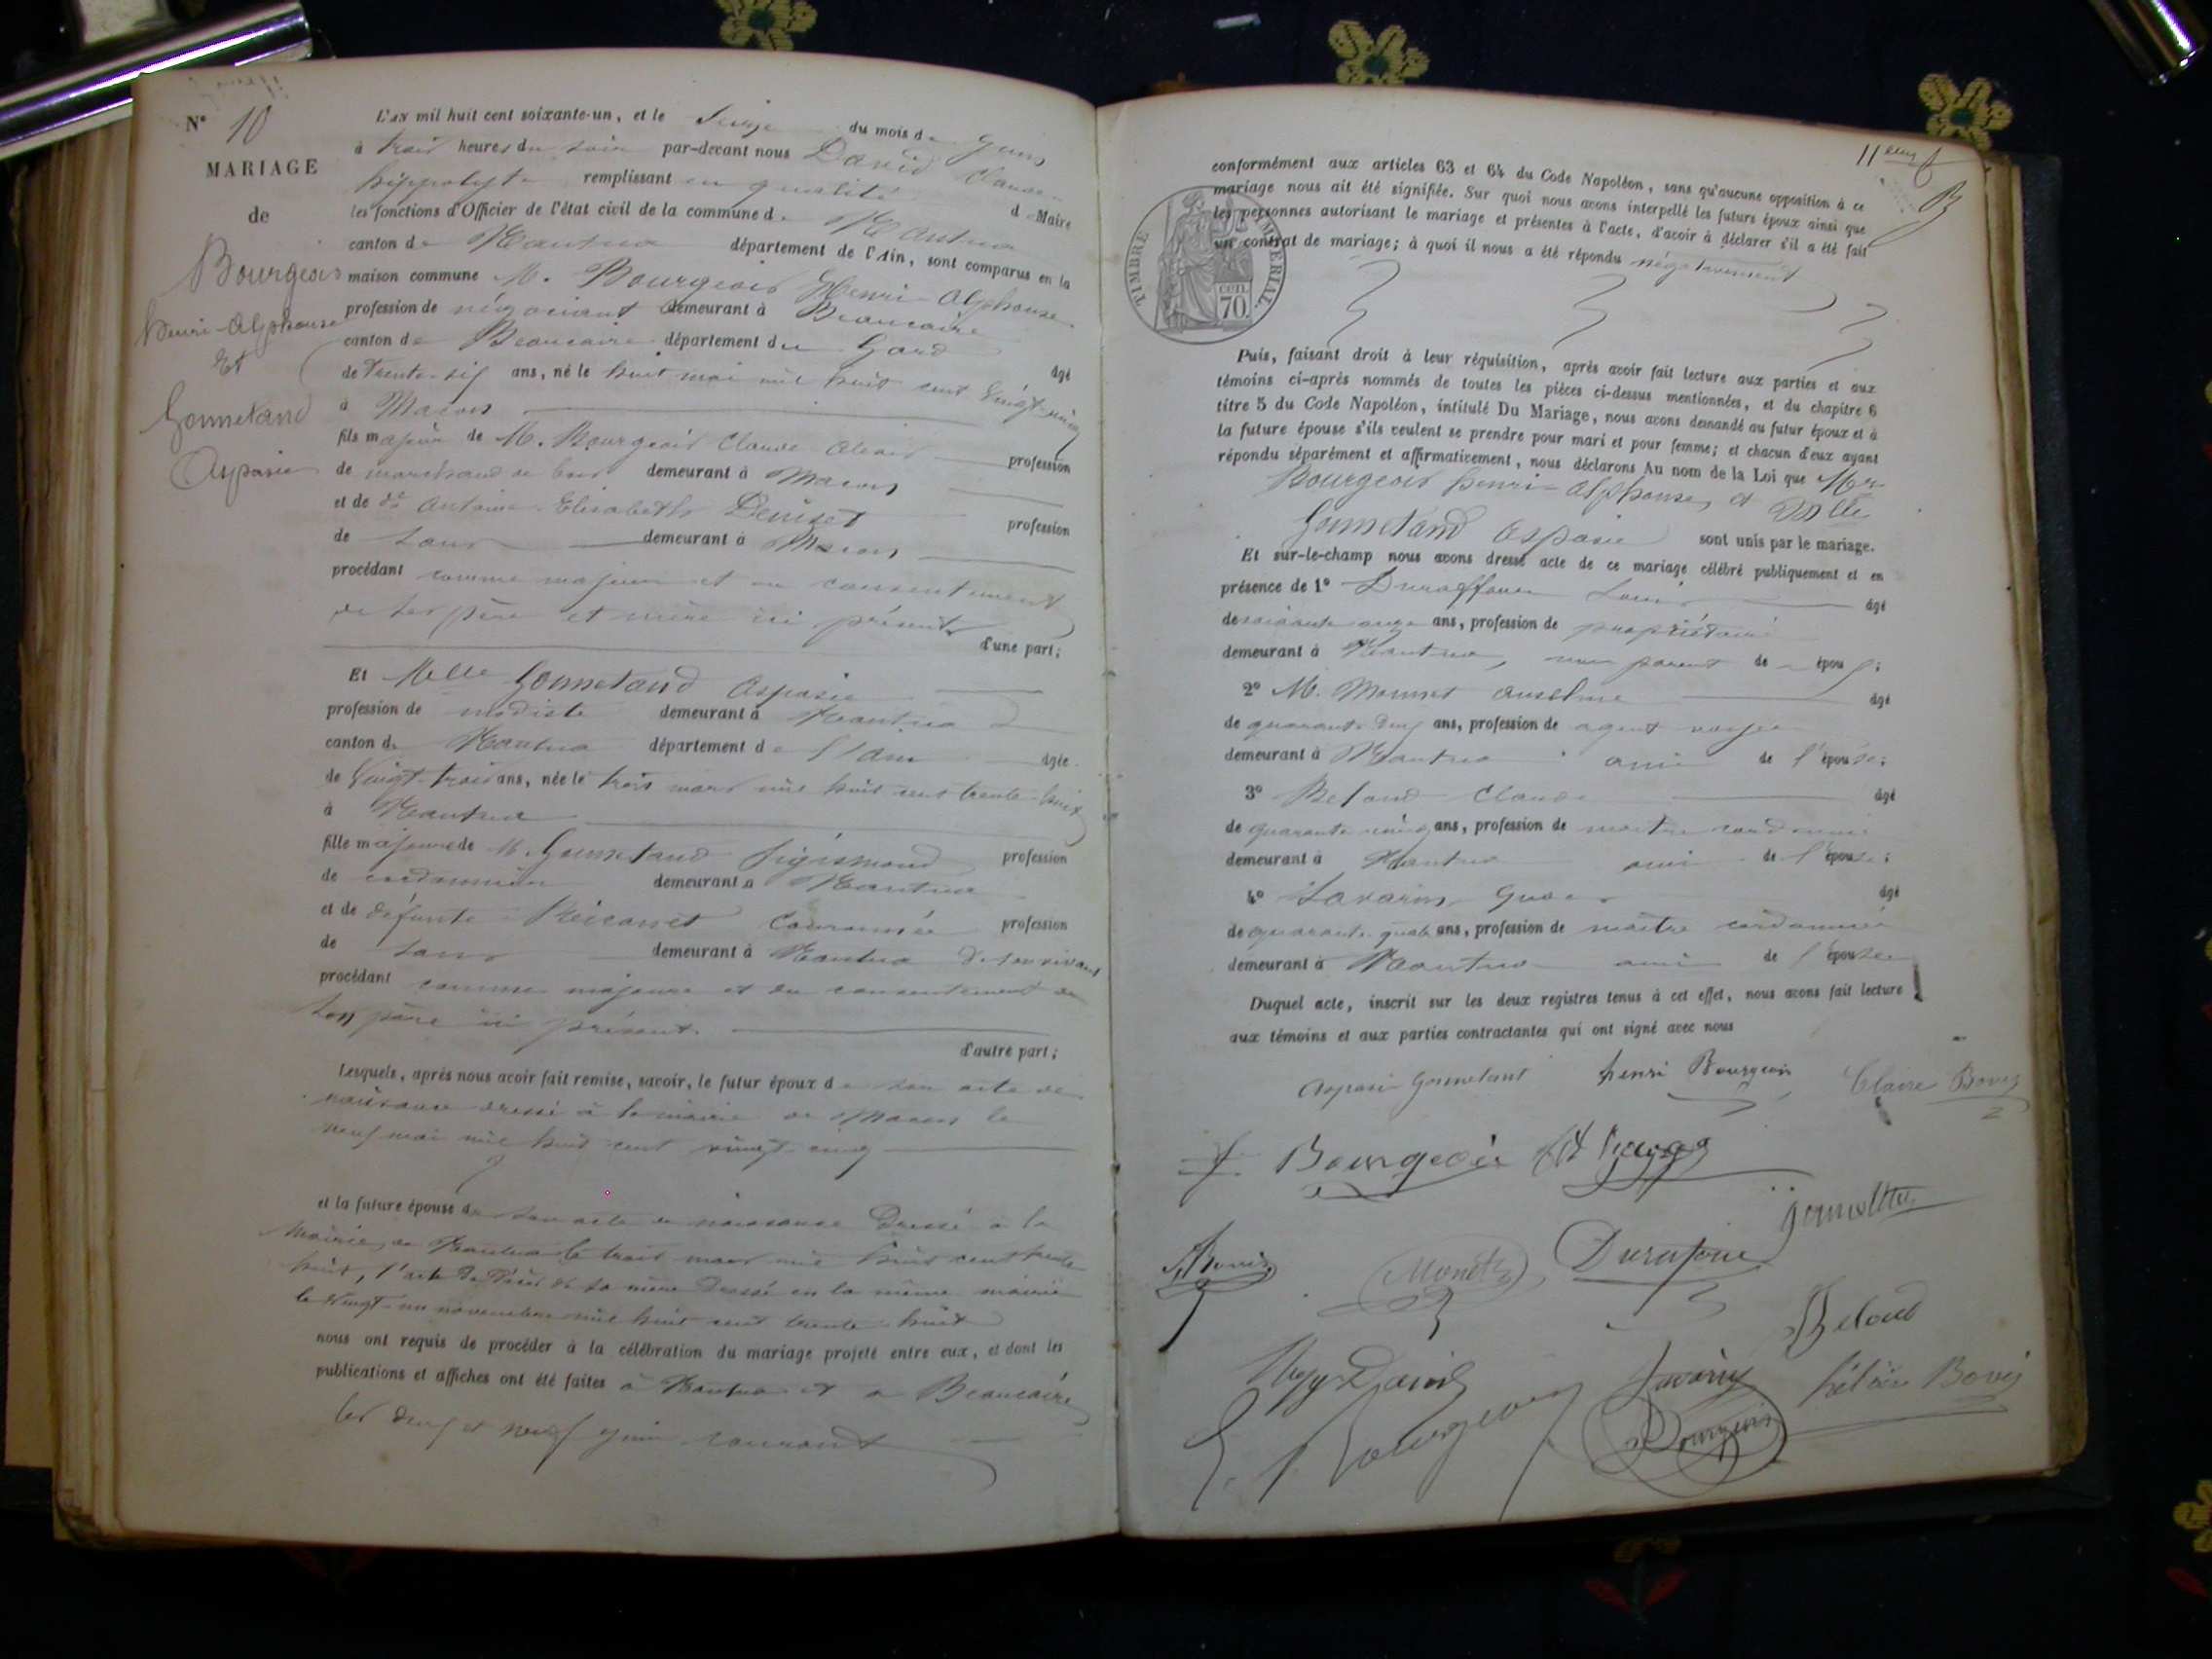 N° 10
MARIAGE
de
Bourgeois
henri-Alphonse
Et
Gonnetand
Aspasie
L'AN mil huit cent soixante-un, et le Seize du mois de Juin
à trois heures du soir par-devant nous David Claude
hippolyte remplissant en qualité de Maire
les fonctions d'Officier de l'état civil de la commune de Nantua
canton de Nantua département de l'Ain, sont comparus en la
maison commune M. Bourgeois Henri-Alphonse
profession de négociant demeurant à Beaucaire
canton de Beaucaire département du Gard âgé
de Trente-six ans, né le huit mai mil huit cent vingt-cinq
à Macon
fils majeur de M. Bourgeois Claude profession
de marchand de bois demeurant à Macon
et de de Antoine Elisabeth Deniset profession
de sans demeurant à Macon
procédant comme majeur et du consentement
de ses père et mère ici présents
d'une part;
Et Melle Gonnetand Aspasie
profession de modiste demeurant à Nantua
canton de Nantua département de l'Ain âgée
de Vingt-trois ans, née le trois mars mil huit cent trente-huit
à Nantua
fille majeure de M. Gonnetand Sigismond profession
de cordonnier demeurant à Nantua
et de défunte Couronnée profession
de sans demeurant à Nantua de son vivant
procédant comme majeure et du consentement de
son père ici présent.
d'autre part;
Lesquels, après nous avoir fait remise, savoir, le futur époux de son acte de
naissance dressé à la mairie de Macon le
neuf mai mil huit cent vingt-cinq
et la future épouse de son acte de naissance Dressé à la
Mairie de Nantua le trois mars mil huit cent trente
huit, l'acte de Décès de sa mère Dressé en la même mairie
le vingt-un novembre mil huit cent trente-huit
nous ont requis de procéder à la célébration du mariage projeté entre eux, et dont les
publications et affiches ont été faites à Nantua et à Beaucaire
les deux et neuf juin courant
conformément aux articles 63 et 64 du Code Napoléon, sans qu'aucune opposition à ce
mariage nous ait été signifiée. Sur quoi nous avons interpellé les futurs époux ainsi que
les personnes autorisant le mariage et présentes à l'acte, d'avoir à déclarer s'il a été fait
un contrat de mariage; à quoi il nous a été répondu négativement
TIMBRE IMPERIAL.
CEN.
70.
Puis, faisant droit à leur réquisition, après avoir fait lecture aux parties et aux
témoins ci-après nommés de toutes les pièces ci-dessus mentionnées, et du chapitre 6
titre 5 du Code Napoléon, intitulé Du Mariage, nous avons demandé au futur époux et à
la future épouse s'ils veulent se prendre pour mari et pour femme; et chacun d'eux ayant
répondu séparément et affirmativement, nous déclarons Au nom de la Loi que Mr
Bourgeois henri-Alphonse, et Melle
Gonnetand Aspasie sont unis par le mariage.
Et sur-le-champ nous avons dressé acte de ce mariage célébré publiquement et en
présence de 1° Duraffour Louis âgé
de soixante onze ans, profession de propriétaire
demeurant à Nantua, non parent des époux;
2° M. Monnet Anselme âgé
de quarante-deux ans, profession de agent voyer
demeurant à Nantua ami de l'épouse;
3° Beloud Claude âgé
de quarante cinq ans, profession de maître cordonnier
demeurant à Nantua ami de l'épouse;
4° Savarin âgé
de quarante-quatre ans, profession de maître cordonnier
demeurant à Nantua ami de l'épouse
Duquel acte, inscrit sur les deux registres tenus à cet effet, nous avons fait lecture
aux témoins et aux parties contractantes qui ont signé avec nous
Aspasie Gonnetant henri Bourgeois Claire Bovis
Bourgeois
Monet Duraffour
Beloud
Hyp David Savarin Bovis
Bourgeois Bourgeois